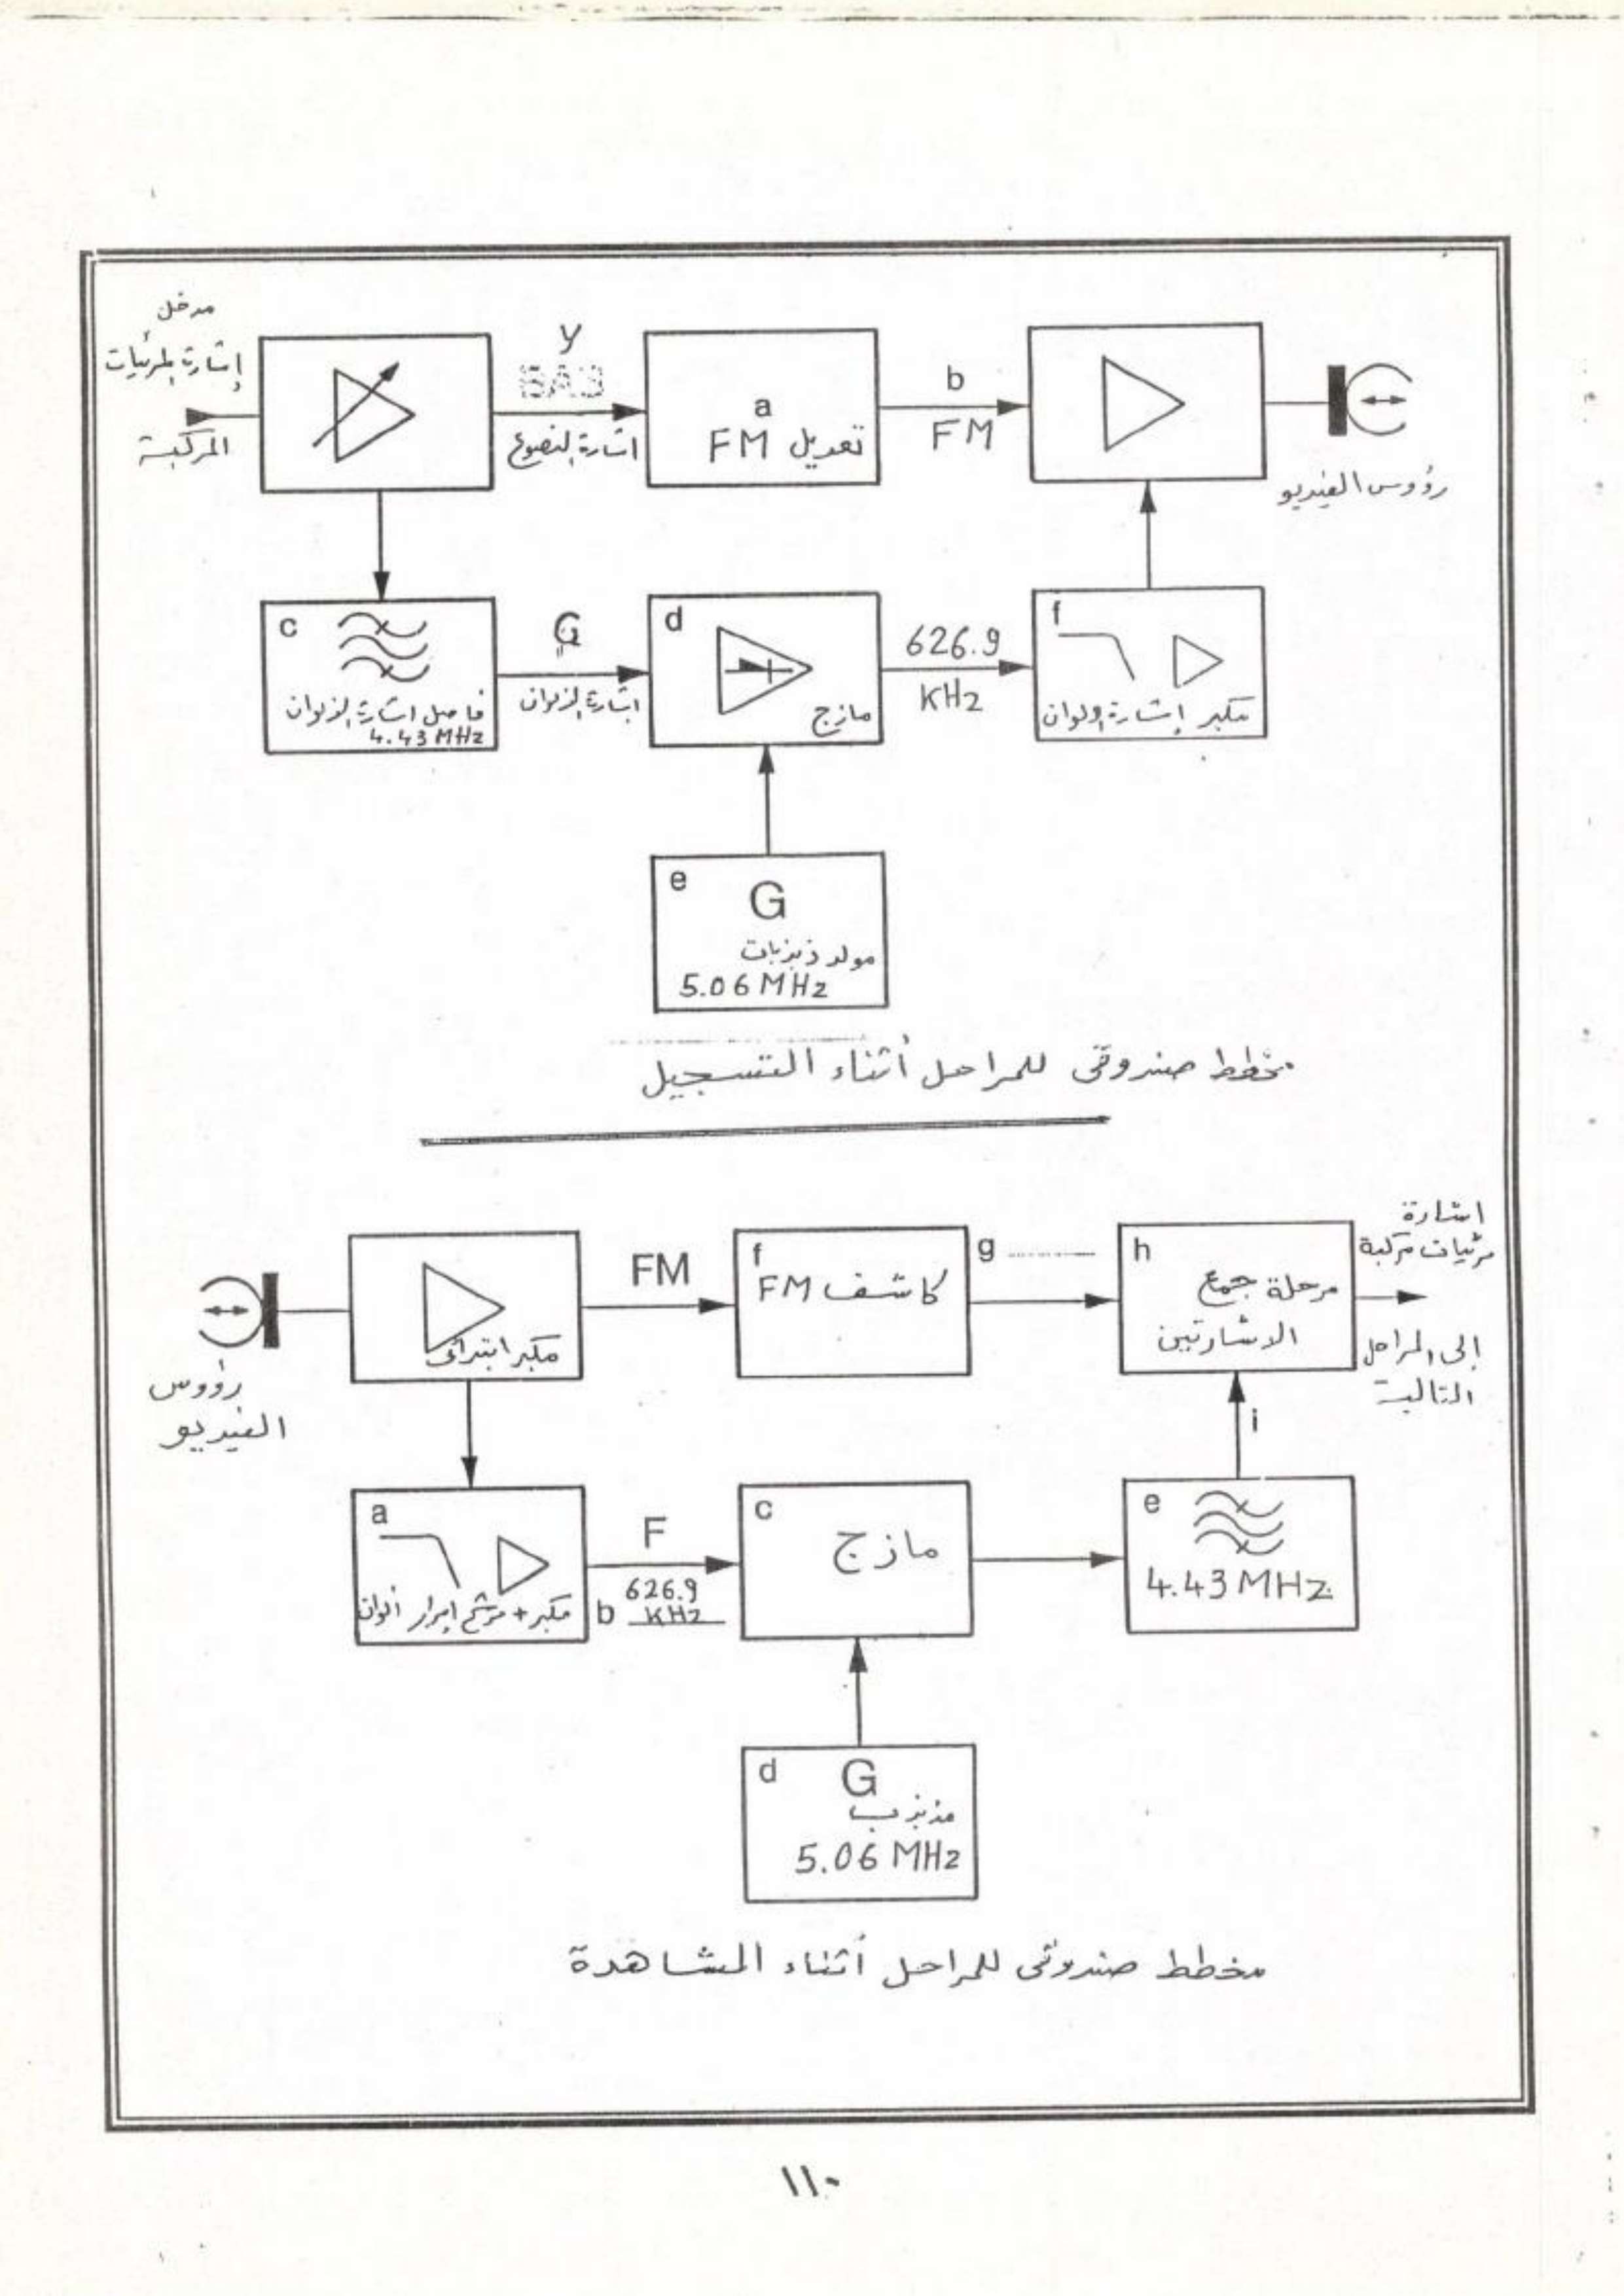 مدخل
إشارة المرئيات
المركبة
y
BAS
إشارة النصوع
a
تعديل FM
b
FM
رؤوس الفيديو
c
فاصل اشارة الالوان
4.43 MHz
اشارة الالوان
d
مازج
626.9
KHz
f
مكبر إشارة الالوان
e
G
مولد ذبذبات
5.06 MHz
مخطط صندوقى للمراحل أثناء التسجيل
رؤوس
الفيديو
مكبر ابتدائى
FM
f
كاشف FM
g
h
مرحلة جمع
الاشارتين
اشارة
مرئيات مركبة
إلى المراحل
التالية
i
a
مكبر + مرشح امرار ألوان
F
b 626.9
KHz
c
مازج
e
4.43 MHz
d
G
مذبذب
5.06 MHz
مخطط صندوقى للمراحل أثناء المشاهدة
١١٠